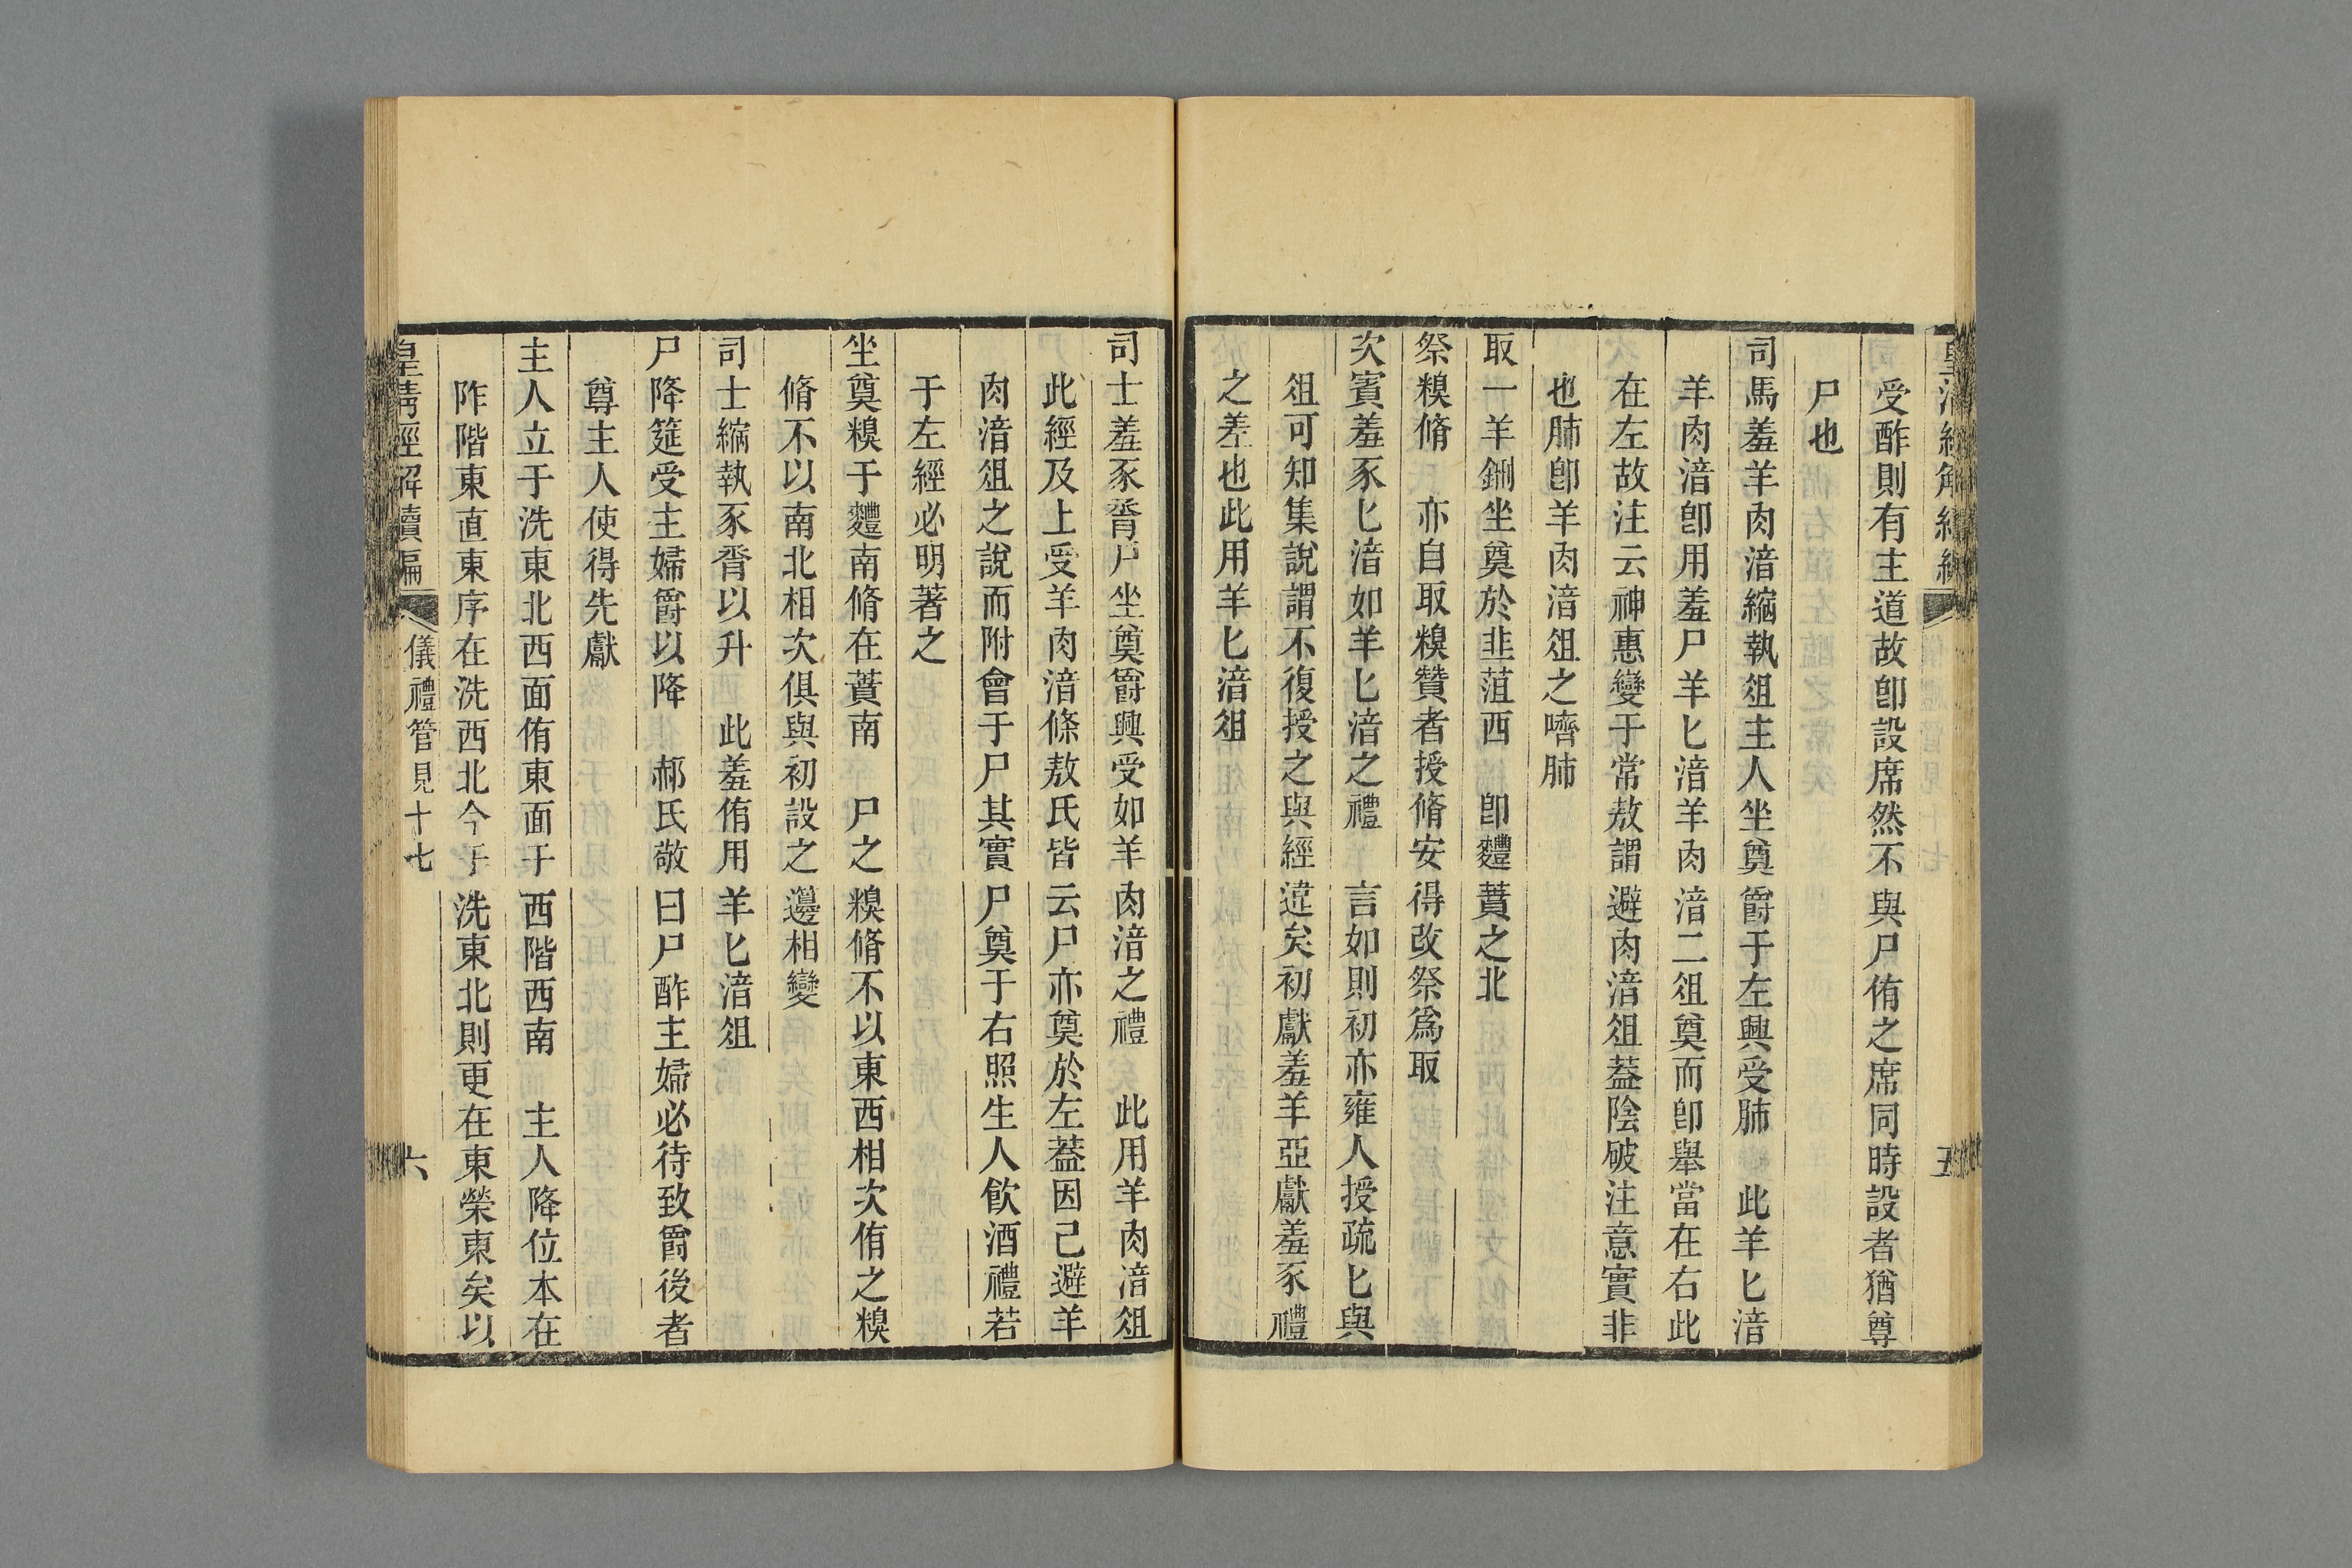 受酢則有主道故卽設席然不與尸侑之席同時設者猶尊
尸也
司馬羞羊肉湆縮執俎主人坐奠爵于左興受肺　此羊匕湆
羊肉湆卽用羞尸羊匕湆羊肉湆二俎奠而卽舉當在右此
在左故注云神惠變于常敖謂避肉湆俎葢陰破注意實非
也肺卽羊肉湆俎之嚌肺
取一羊鉶坐奠於韭菹西　卽麷蕡之北
祭糗脩　亦自取糗贊者授脩安得改祭爲取
次賓羞豕匕湆如羊匕湆之禮　言如則初亦雍人授疏匕與
俎可知集說謂不復授之與經違矣初獻羞羊亞獻羞豕禮
之差也此用羊匕湆俎
司士羞豕脀尸坐奠爵興受如羊肉湆之禮　此用羊肉湆俎
此經及上受羊肉湆條敖氏皆云尸亦奠於左葢因己避羊
肉湆俎之說而附會于尸其實尸奠于右照生人飮酒禮若
于左經必明著之
坐奠糗于麷南脩在蕡南　尸之糗脩不以東西相次侑之糗
脩不以南北相次俱與初設之籩相變
司士縮執豕脀以升　此羞侑用羊匕湆俎
尸降筵受主婦爵以降　郝氏敬曰尸酢主婦必待致爵後者
尊主人使得先獻
主人立于洗東北西面侑東面于西階西南　主人降位本在
阼階東直東序在洗西北今于洗東北則更在東榮東矣以
皇淸經解續編
儀禮管見十七
六